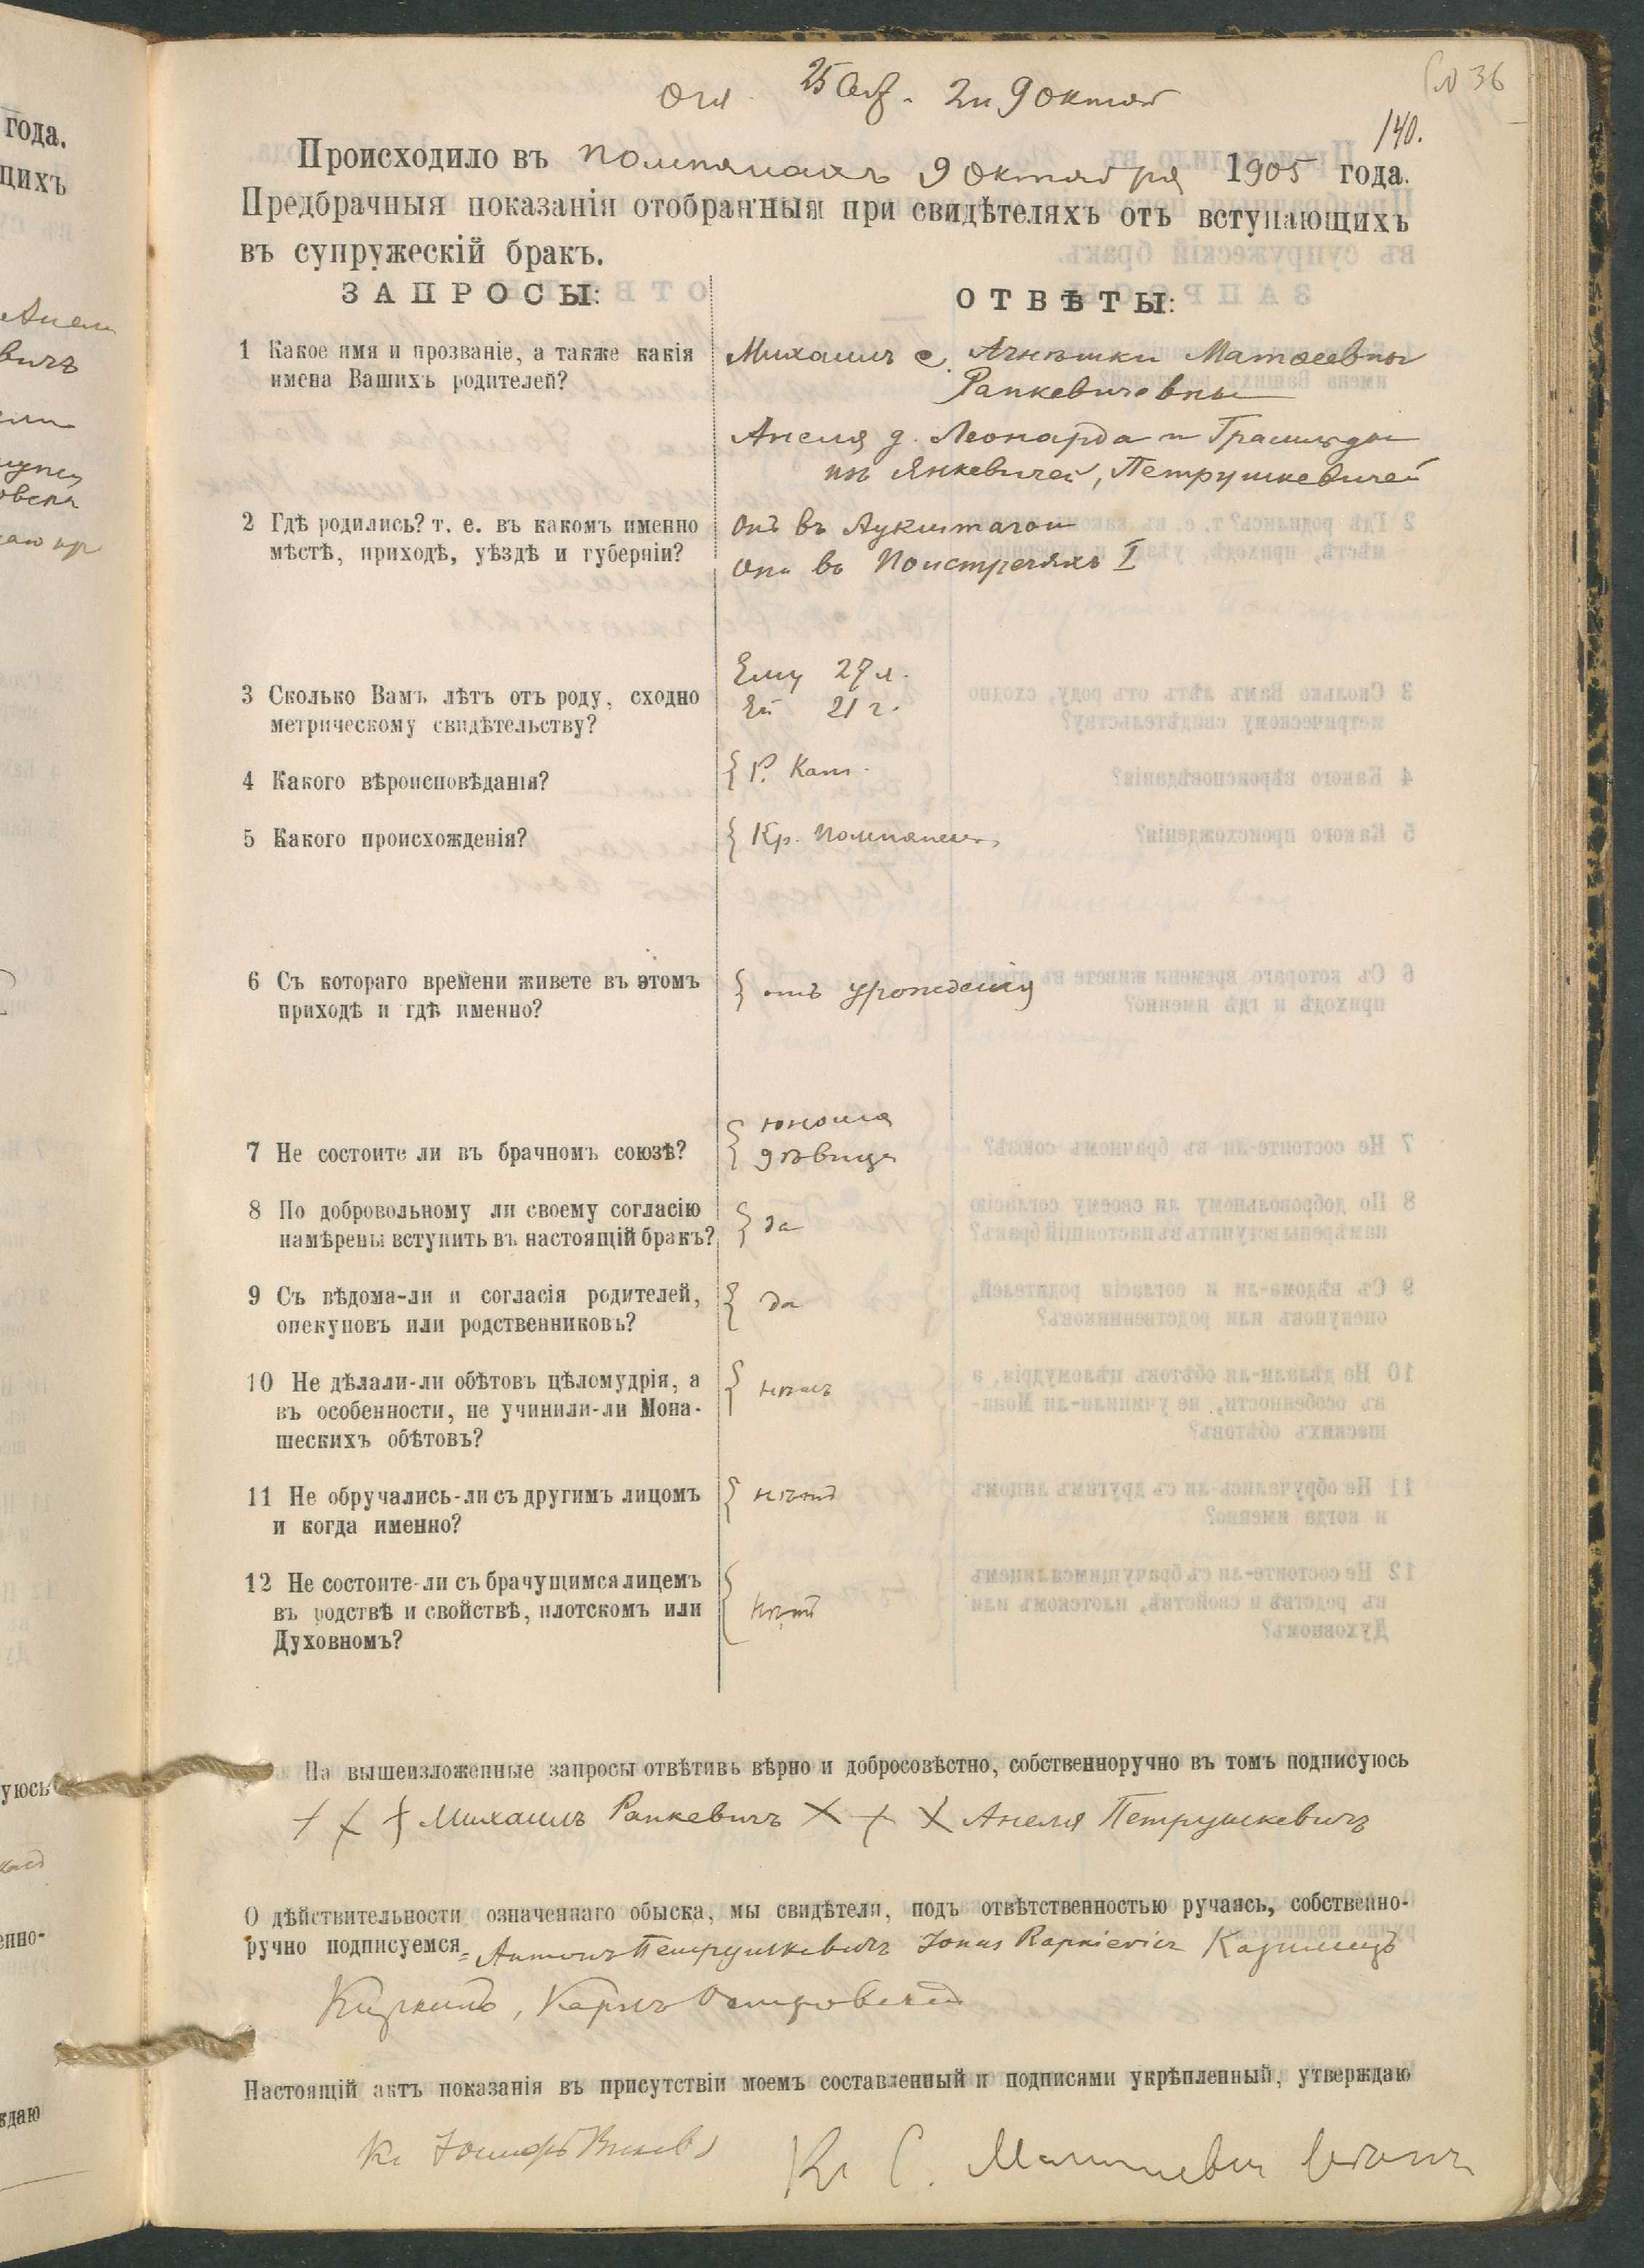 № 36
Огл. 25 Сент. 2 и 9 октяб
140.
Происходило въ Помпянахъ 9 Октября 1905 года.
Предбрачныя показанія отобранныя при свидѣтеляхъ отъ вступающихъ
въ супружескій бракъ.
ЗАПРОСЫ:
ОТВѢТЫ:
1 Какое имя и прозваніе, а также какія
имена Вашихъ родителей?
Михаилъ с. Агнѣшки Матвеевны
Рапкевичевны
Анеля д. Леонарда и Грасильды
изъ Янкевичей, Петрушкевичей
2 Гдѣ родились? т. е. въ какомъ именно
мѣстѣ, приходѣ, уѣздѣ и губерніи?
Онъ въ
Она въ Поистречяхъ I
3 Сколько Вамъ лѣтъ отъ роду, сходно
метрическому свидѣтельству?
Ему 27 л.
Ей 21 г.
4 Какого вѣроисповѣданія?
Р. Кат.
5 Какого происхожденія?
Кр. Помпянск.
6 Съ котораго времени живете въ этомъ
приходѣ и гдѣ именно?
отъ урожденія
7 Не состоите ли въ брачномъ союзѣ?
юноша
дѣвица
8 По добровольному ли своему согласію
намѣрены вступить въ настоящій бракъ?
да
9 Съ вѣдома-ли и согласія родителей,
опекуновъ или родственниковъ?
да
10 Не дѣлали-ли обѣтовъ цѣломудрія, а
въ особенности, не учинили-ли Мона-
шескихъ обѣтовъ?
нѣтъ
11 Не обручались-ли съ другимъ лицомъ
и когда именно?
нѣтъ
12 Не состоите-ли съ брачущимся лицемъ
въ родствѣ и свойствѣ, плотскомъ или
Духовномъ?
нѣтъ
На вышеизложенные запросы отвѣтивъ вѣрно и добросовѣстно, собственноручно въ томъ подписуюсь
+ + + Михаилъ Рапкевичъ + + + Анеля Петрушкевичъ
О дѣйствительности означеннаго обыска, мы свидѣтели, подъ отвѣтственностью ручаясь, собственно-
ручно подписуемся Антонъ Петрушкевичъ Jonas Rapkievicz Казимиръ
Карлъ
Настоящій актъ показанія въ присутствіи моемъ составленный и подписями укрѣпленный, утверждаю
Кс Іосифъ
Кс С.